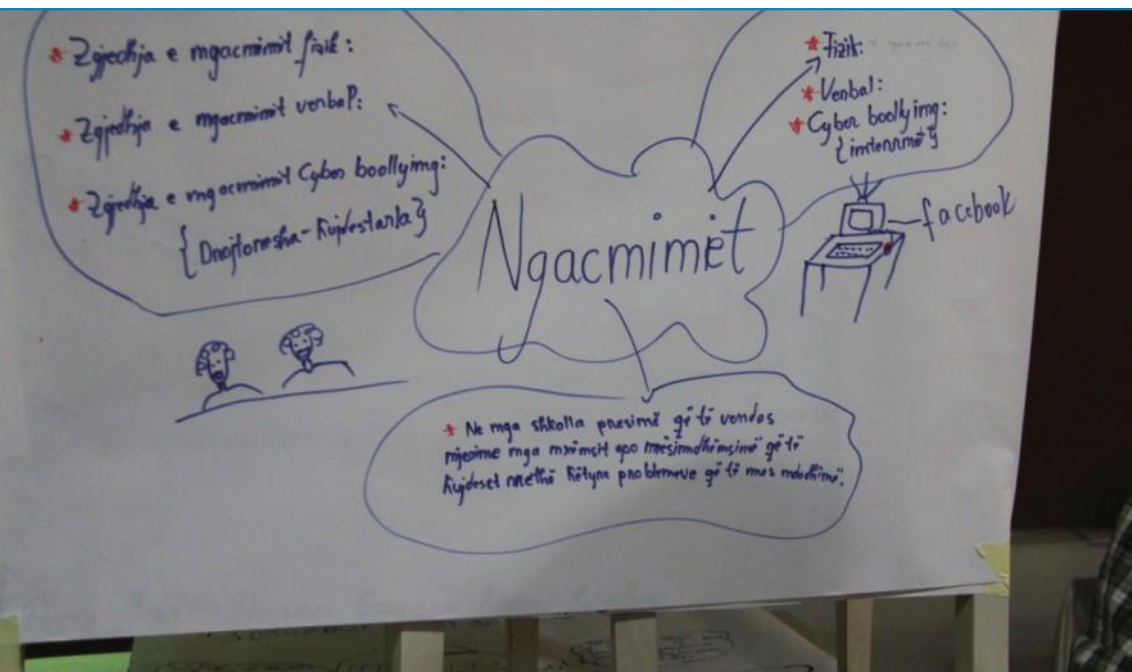 * Zgjedhja e mgacmimit fizik:
* Zgjedhja e mgacmimit verbal:
* Zgjedhja e mgacmimit Cyber boollyimg:
{Drejtoresha - Kujdestarla}
Ngacmimet
* Fizik:
* Verbal:
* Cyber boollyimg:
{imternmet}
facebook
* Ne mga shkolla presimë që të vendos
mga apo që të
Kujdeset rrethë këtyre problemeve që të mos mdodhimë.